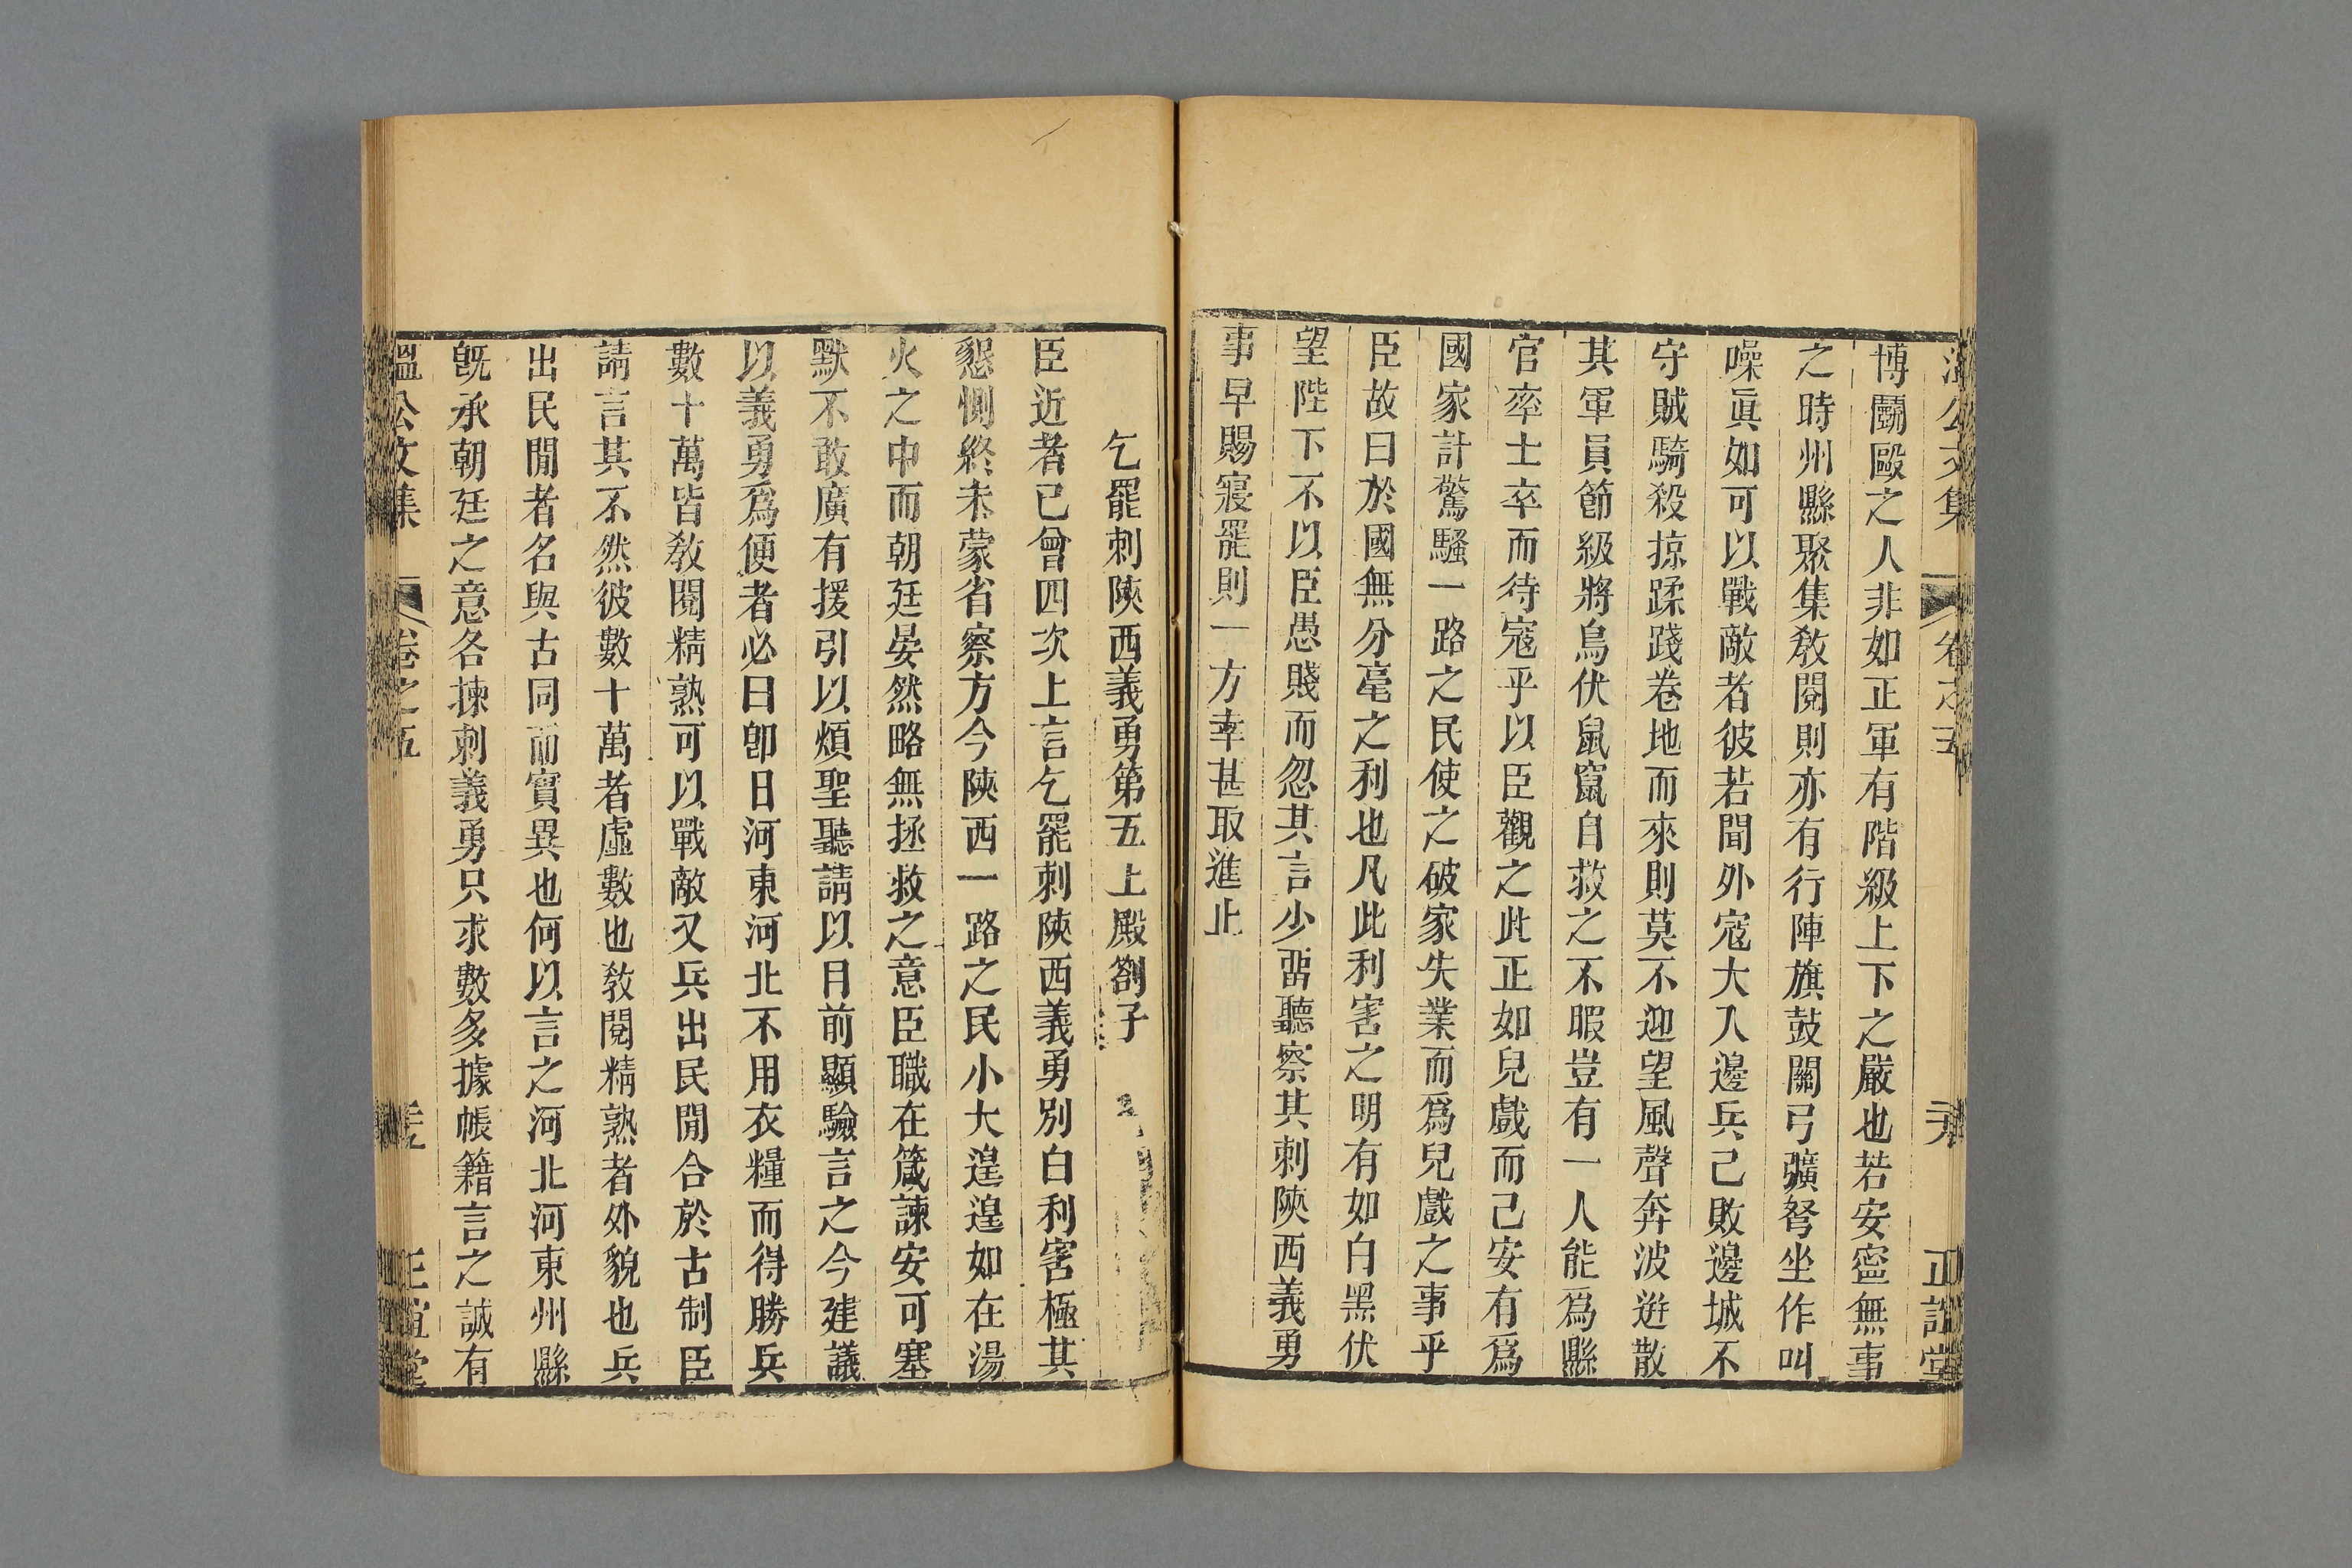 溫公文集 卷之五 正誼堂
博鬭毆之人非如正軍有階級上下之嚴也若安寍無事
之時州縣聚集敎閱則亦有行陣旗鼓關弓彍弩坐作叫
噪眞如可以戰敵者彼若聞外寇大入邊兵已敗邊城不
守賊騎殺掠蹂踐卷地而來則莫不迎望風聲奔波逬散
其軍員節級將鳥伏鼠竄自救之不暇豈有一人能爲縣
官率士卒而待寇乎以臣觀之此正如兒戲而已安有爲
國家計驚騷一路之民使之破家失業而爲兒戲之事乎
臣故曰於國無分毫之利也凡此利害之明有如白黑伏
望陛下不以臣愚賤而忽其言少畱聽察其刺陝西義勇
事早賜寢罷則一方幸甚取進止
乞罷刺陝西義勇第五上殿劄子
臣近者已曾四次上言乞罷刺陝西義勇別白利害極其
懇惻終未蒙省察方今陝西一路之民小大遑遑如在湯
火之中而朝廷晏然略無拯救之意臣職在箴諫安可塞
默不敢廣有援引以煩聖聽請以目前顯驗言之今建議
以義勇爲便者必曰卽日河東河北不用衣糧而得勝兵
數十萬皆敎閱精熟可以戰敵又兵出民閒合於古制臣
請言其不然彼數十萬者虛數也敎閱精熟者外貌也兵
出民閒者名與古同而實異也何以言之河北河東州縣
旣承朝廷之意各揀刺義勇只求數多據帳籍言之誠有
溫公文集 卷之五 正誼堂